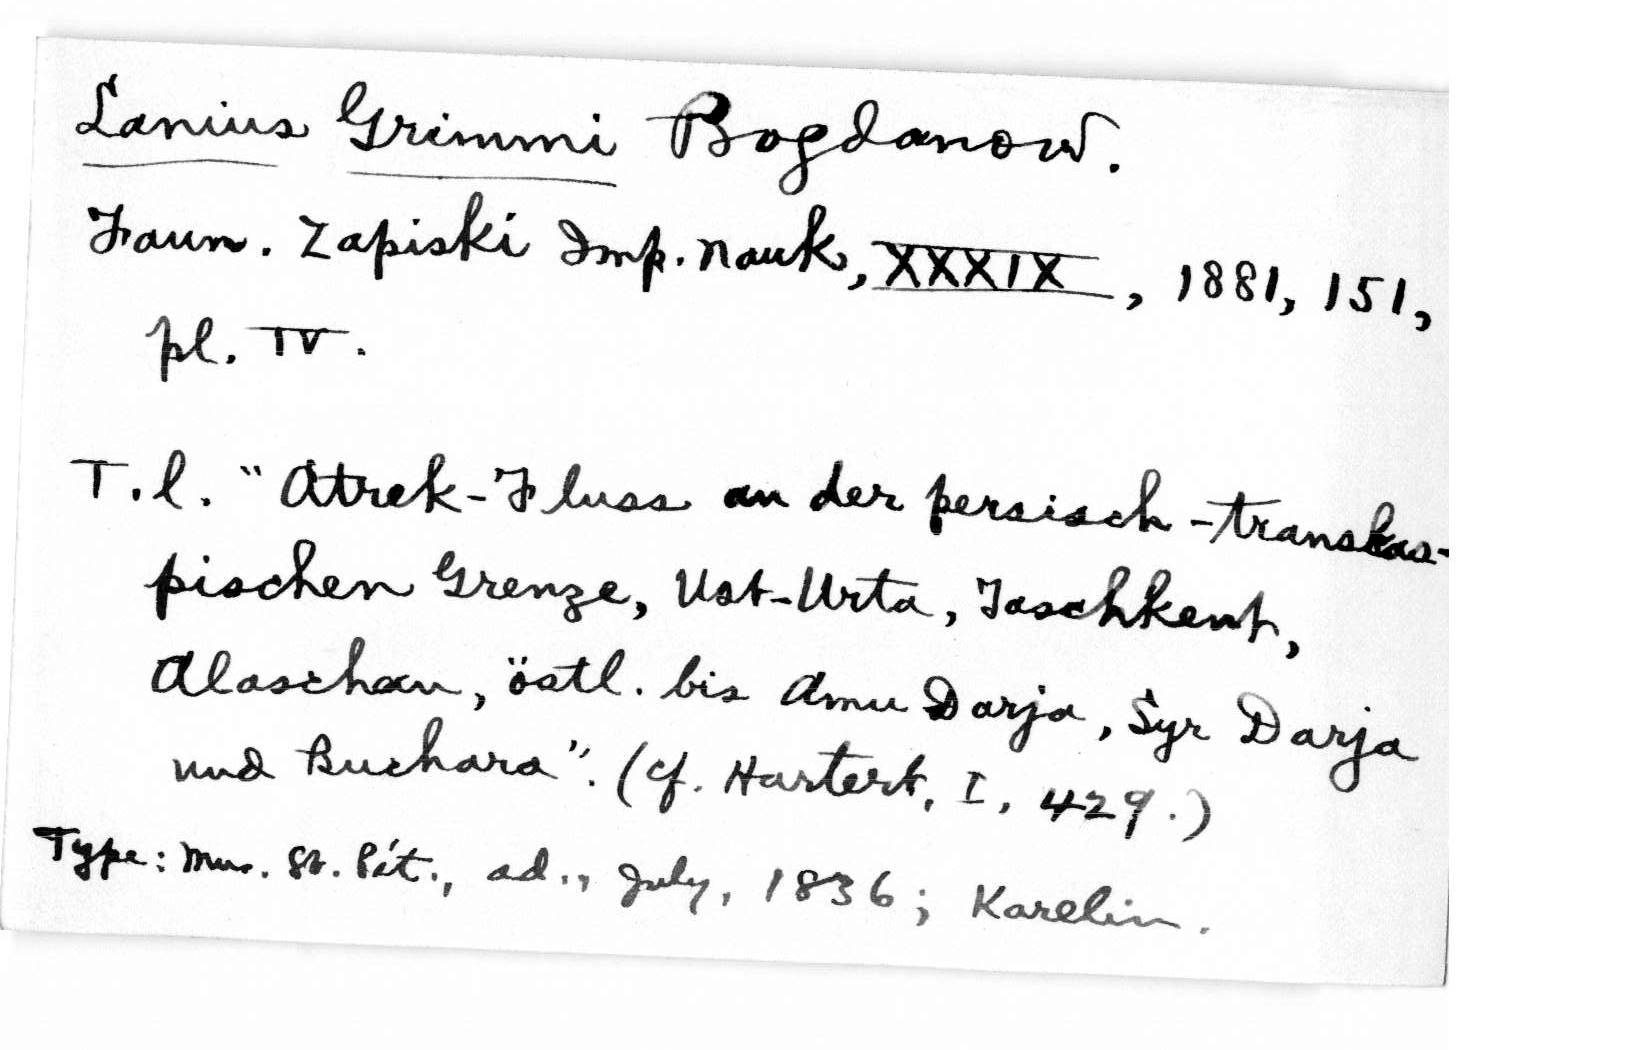 Lanius Grimmi Bogdanow.
Faun. Zapiski Imp. Nauk, XXXIX, 1881, 151,
pl. IV.
T.l. "Atrek-Fluss an der persisch-transkas-
pischen Grenze, Ust-Urta, Taschkent,
Alaschan, östl. bis Amu Darja, Syr Darja
und Buchara". (cf. Hartert, I, 429.)
Type: Mus. St. Pét., ad., July, 1836; Karelin.